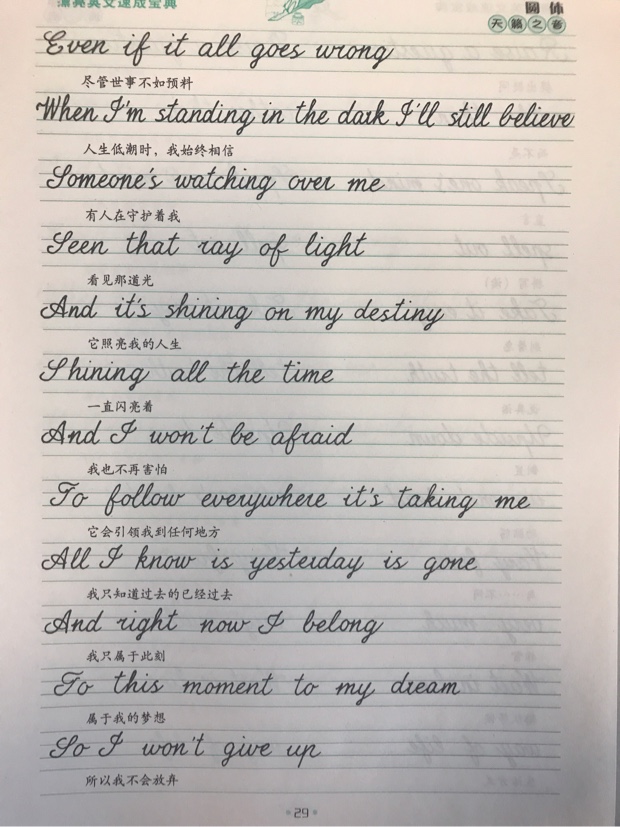 漂亮英文速成宝典
圆体
天籁之音
Even if it all goes wrong
尽管世事不如预料
When I'm standing in the dark I'll still believe
人生低潮时，我始终相信
Someone's watching over me
有人在守护着我
Seen that ray of light
看见那道光
And it's shining on my destiny
它照亮我的人生
Shining all the time
一直闪亮着
And I won't be afraid
我也不再害怕
To follow everywhere it's taking me
它会引领我到任何地方
All I know is yesterday is gone
我只知道过去的已经过去
And right now I belong
我只属于此刻
To this moment to my dream
属于我的梦想
So I won't give up
所以我不会放弃
29